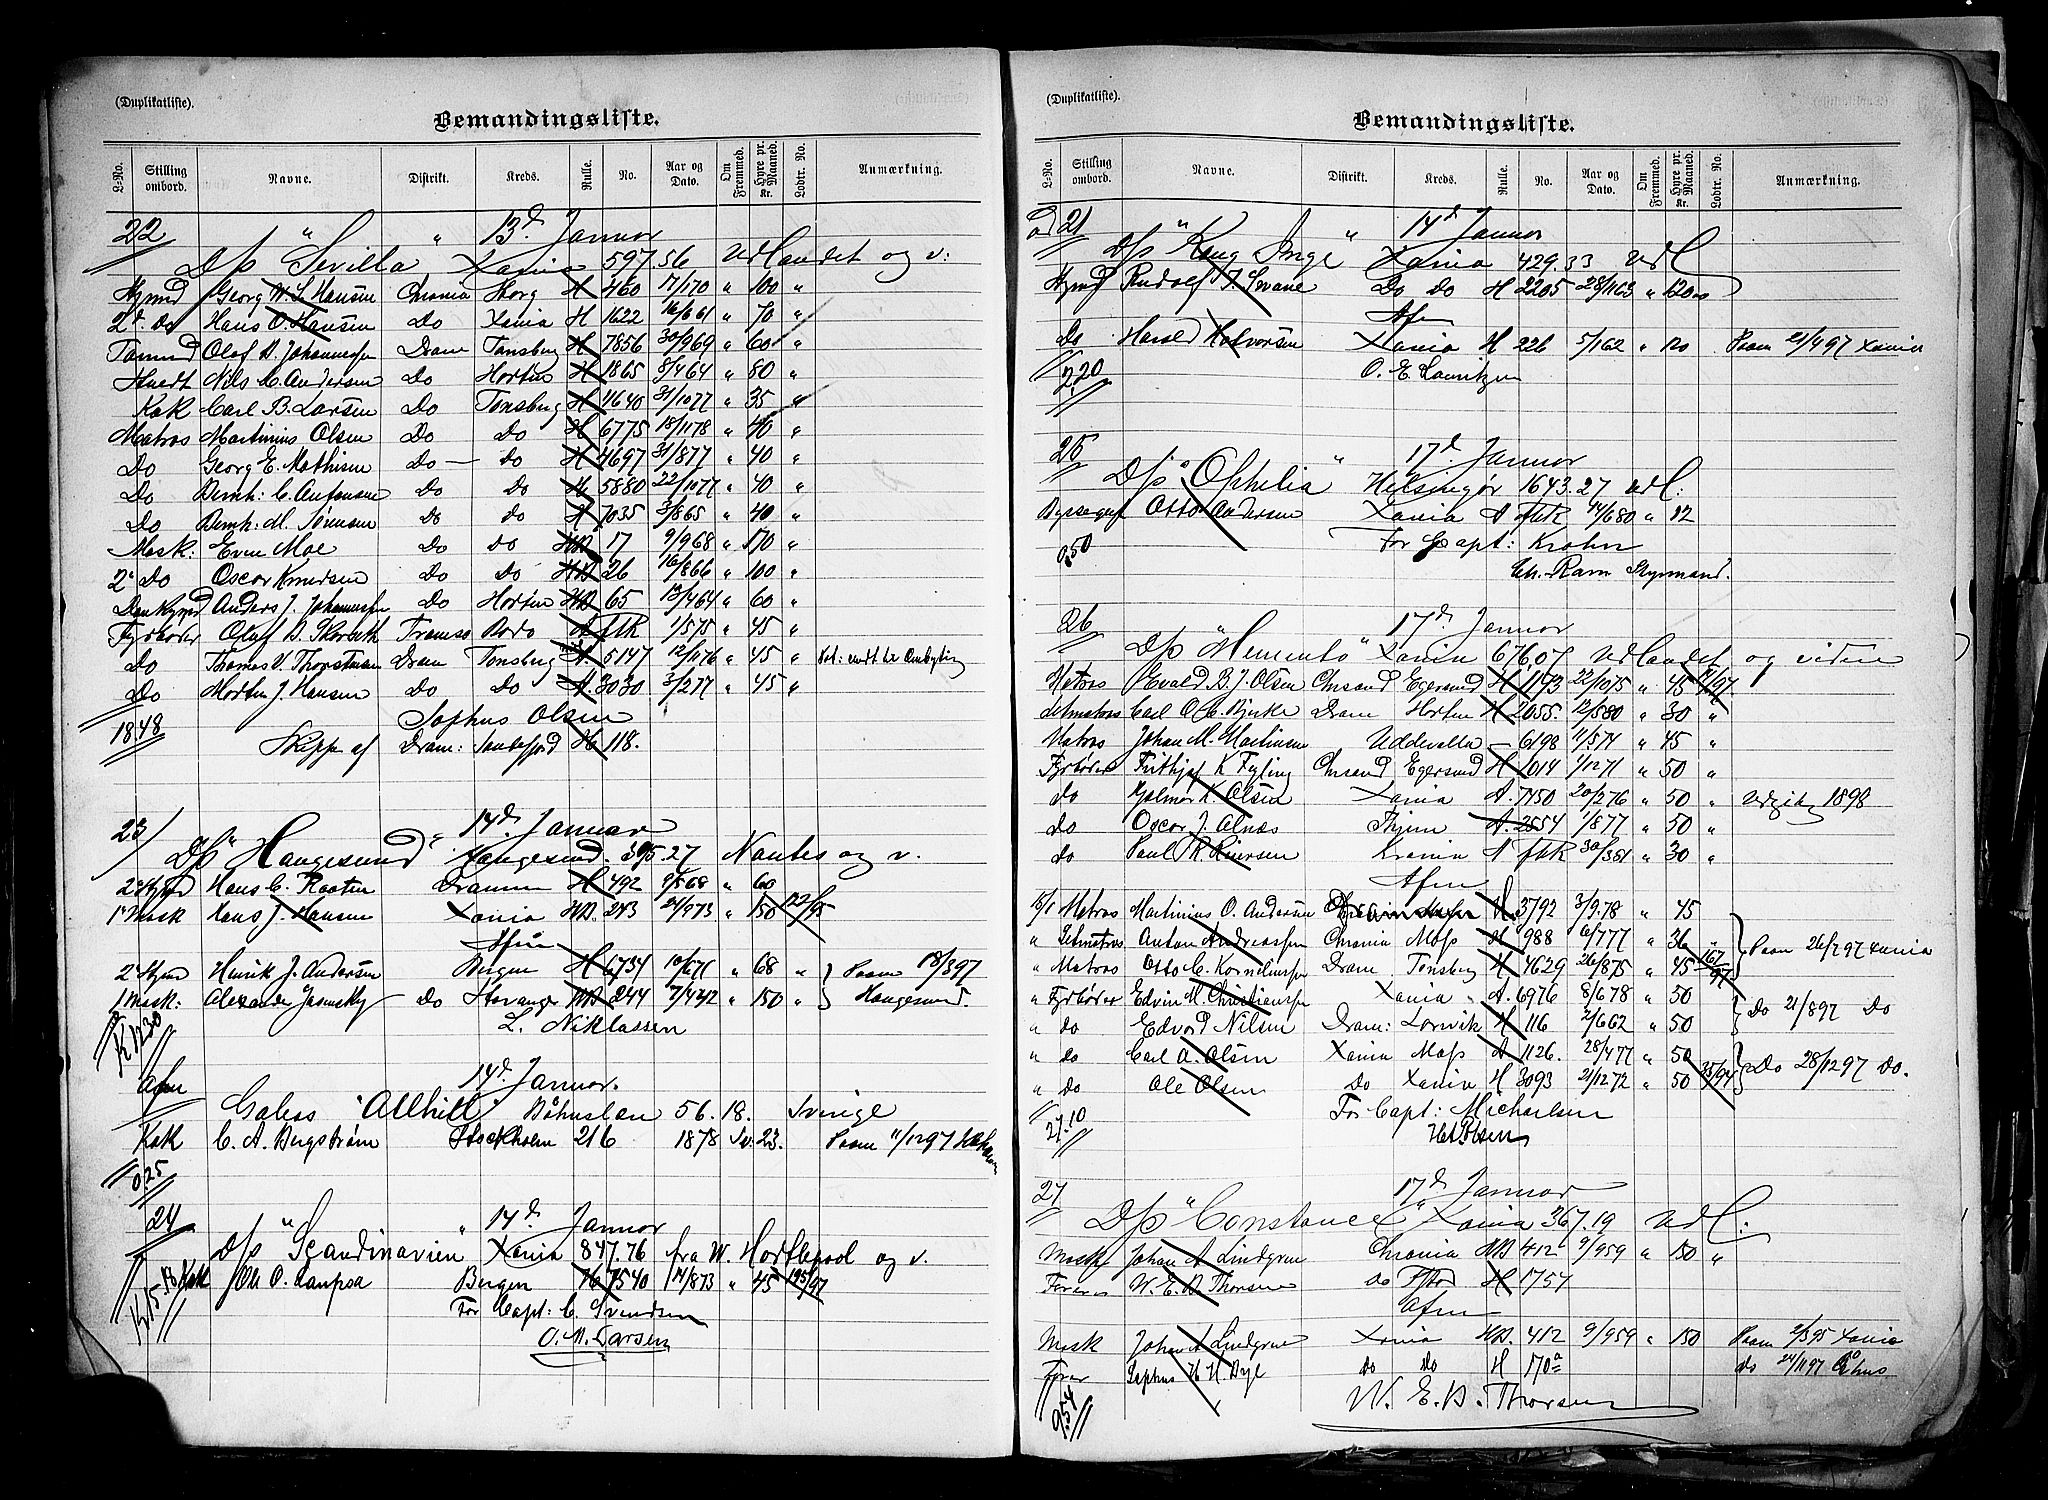 (Duplikatliste).
Bemandingsliste.
L-No. Stilling ombord. Navne. Distrikt. Kreds. Rulle. No. Aar og Dato. Om Fremmed. Hyre pr. Maaned. Kr. Lodtr. No. Anmærkning.
22 13d Januar
D/p "Sevilla" Xania 597.56 Udlandet og v:
Hansen Chrania H 460 17/170 " 100 "
2d Do Hans O. Hansen Do Xania H 1622 16/661 " 70 "
Olaf A. Johannessen Dram Tønsberg H 7856 30/969 " 60 "
Nils C. Andersen Do Horten H 1865 8/464 " 80 "
Kok Carl B. Larsen Do Tønsberg H 4640 31/1077 " 35 "
Matros Martinius Olsen Do Do H 6775 18/1178 " 40 "
Do Georg E. Mathisen Do — do H 4697 31/877 " 40 "
Do Bernh: C. Antonsen Do Do H 5880 22/1077 " 40 "
Do Bernh: M. Sørensen Do do H 7035 3/865 " 40 "
Mask: Even Moe Do do HA 17 9/968 " 170 "
2d Do Oscar Do Do HA 26 16/866 " 100 "
Anders J. Johannessen Do Horten HA 65 12/464 " 60 "
Fyrbøder Oluf Tromsø Bodø A ftR 1/575 " 45 "
Do Thomas Dram Tønsberg A 5147 12/1176 " 45 "
Do Morten J. Hansen Do Do A 3030 3/277 " 45 "
18.48 Sophus Olsen
Skipp af Dram: Sandefjord H 118.
23/ 14d Januar
D/p "Haugesund" Haugesund 395.27 Nantes og v.
2d Hans C. Drammen H 492 9/568 " 60
1e Mask Hans J. Hansen Xania HA. 243 24/973 " 150
Afm
2d Henrik J. Andersen Bergen H 6734 10/671 " 68 " Paam 18/897
1 Mask: Alexander Do Stavanger HA 244 7/442 " 150 " Haugesund.
L. Niklassen
K 12.30
Afm 14d Januar.
Galeas "Allhill" Båhuslen 56.18. Sverige
Kok C. A. Bergstrøm Stockholm 216 1878 Sv. 23. Paam 11/1297
0.25
24 14d Januar
D/p "Scandinavien" Xania 847.76 fra W. Hartlepool og v.
Kok Ole O. Bergen 7540 14/873 " 45 195/97
For Capt: C. Svendsen
O. M. Larsen
(Duplikatliste).
Bemandingsliste.
L-No. Stilling ombord. Navne. Distrikt. Kreds. Rulle. No. Aar og Dato. Om Fremmed. Hyre pr. Maaned. Kr. Lodtr. No. Anmærkning.
ad 21 14d Januar
D/p "Kong Inge" Xania 429.33 Udl
Rudolf Svane Do do H 2205 28/1163 " 120
Afm
Do Harald Halvorsen Xania H 226 5/162 " Paam 21/497 Xania
2.20 O. E. Lauritzen
25 17d Januar
D/p "Ophelia" Helsingør 1643.27 Udl:
Otto Andersen Xania A ftR 14/680 " 12
For Capt: Krohn
0.50
Chr. Ravn Styrmand.
26 17d Januar
D/p "Memento" Xania 676.07 Udlandet og videre
Matros Evald B. J. Olsen Chrsand Egersund H 1173 22/1075 " 45
Letmatros Carl O. C. Bjerke Dram Horten H 2055. 12/580 " 30 "
Matros Johan M. Martinsen Uddevalla — 6198 11/574 " 45 "
Fyrbøder Frithjof K. Fyling Chrsand Egersund H 1014 1/1271 " 50 "
do Hjalmar K. Olsen Xania A. 7150 20/276 " 50 " Udgik 1898
do Oscar J. Alnæs Thjem A. 2554 1/877 " 50 "
do Paul R. Iversen Krania A ftR 30/381 " 30 "
Afm
15/1 Matros Martinius O. Andersen H 3792 3/9.78 " 45
" Letmatros Anton Andreassen Chrania Moss H 988 6/777 " 36 Paam 26/797 Xania
" Matros Otto C. Kornelius Dram Tønsberg H 4629 26/875 " 45 167/97
" Fyrbøder Edvin M. Christiansen Xania A. 6976 8/678 " 50 Do 21/897 Do
" do Edvard Nilsen Dram: Larvik H 116 2/662 " 50
" do Carl A. Olsen Xania Moss A 1126. 28/477 " 50 Do 28/1297 Do.
" do Ole Olsen Do Xania H 3093 21/1272 " 50 35/94
27.10 For Capt: Michaelsen
27 17d Januar
D/p "Constance" Xania 367.19 Udl:
Mask Johan A Lindgren Chrania HA 412 9/959 " 150 "
Fører W. E. A. Thorsen do H 1754
Afm
Mask Johan A Lindgren Xania HA. 412 9/959 " 150 Paam 2/395 Xania
Fører Sophus H. H. do do H 170a do 24/1197
9.54 W. E. A. Thorsen